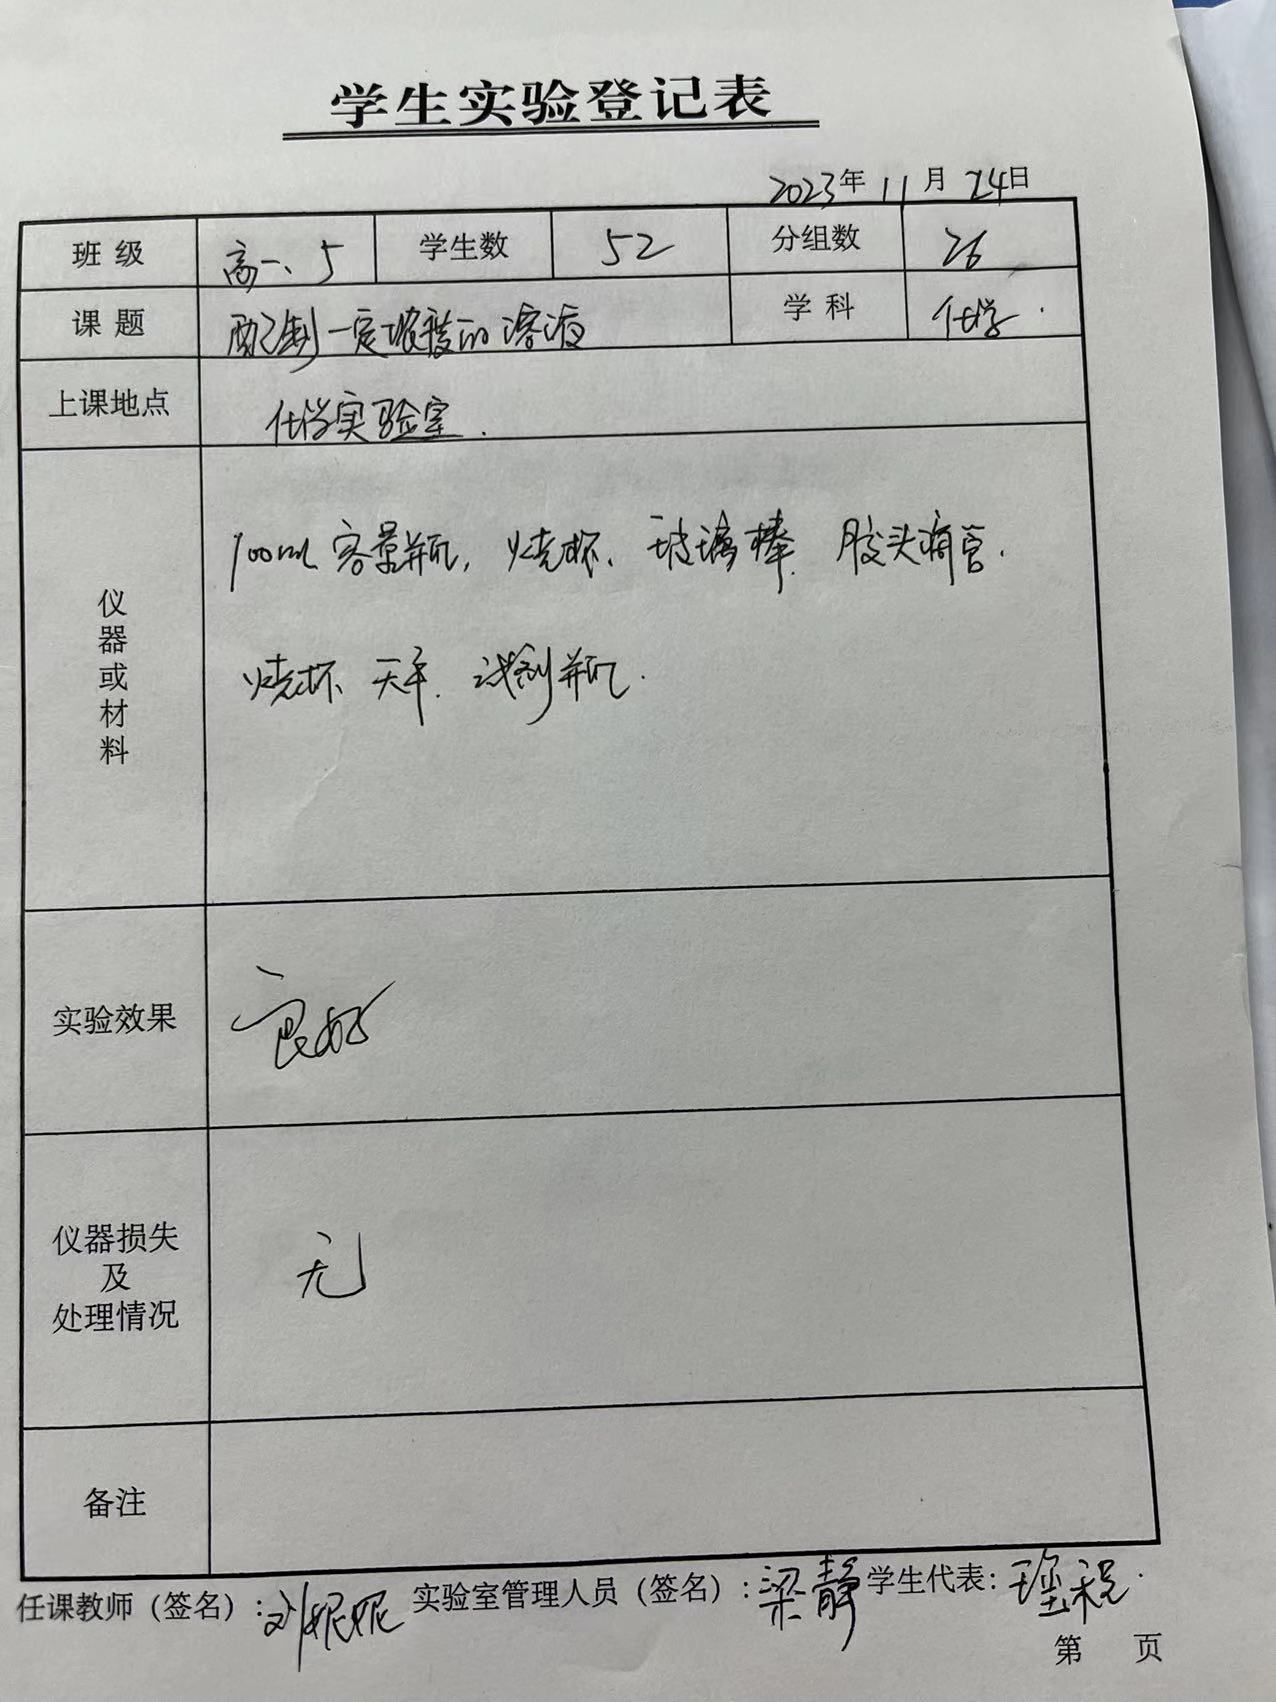 学生实验登记表
2023年 11月 24日
班级 高一、5 学生数 52 分组数 26
课题 配制一定浓度的溶液 学科 化学.
上课地点 化学实验室.
仪器或材料
100mL 容量瓶, 烧杯、玻璃棒、胶头滴管.
烧杯、天平、试剂瓶.
实验效果 良好
仪器损失
及
处理情况 无
备注
任课教师（签名）:刘妮妮 实验室管理人员（签名）:梁静 学生代表:
第 页